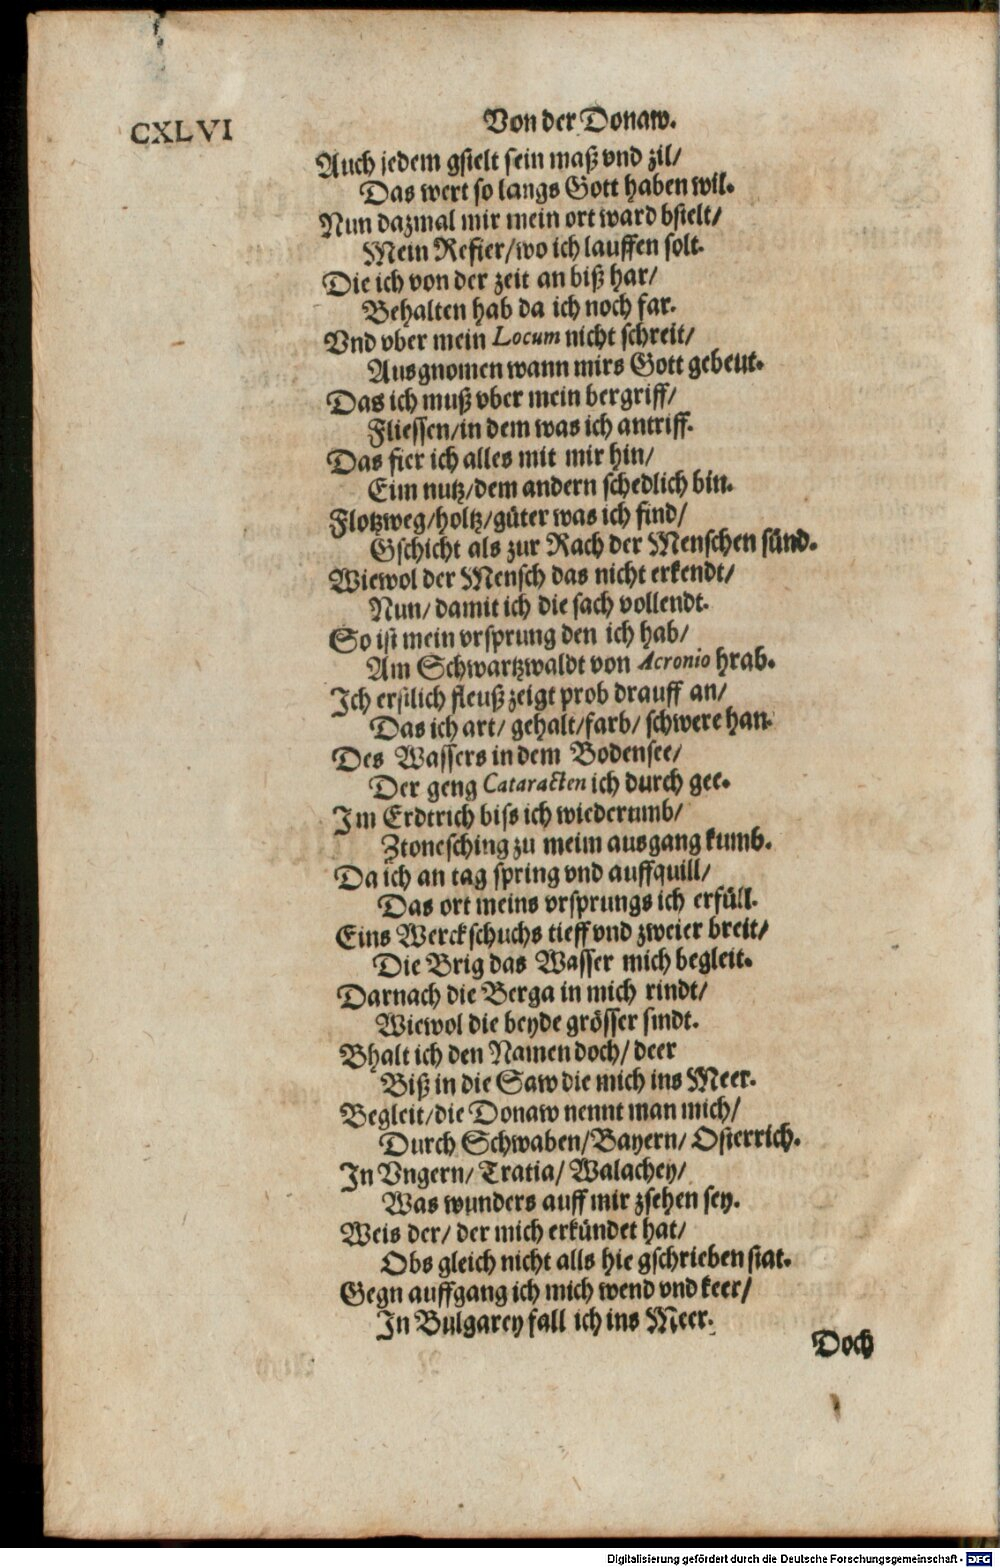 CXLVI
Von der Donaw.
Auch jedem gstelt sein maß vnd zil/
Das wert so langs Gott haben wil.
Nun dazmal mir mein ort ward bstelt/
Mein Refier/wo ich lauffen solt.
Die ich von der zeit an biß har/
Behalten hab da ich noch far.
Vnd vber mein Locum nicht schreit/
Ausgnomen wann mirs Gott gebeut.
Das ich muß vber mein bergriff/
Fliessen/in dem was ich antriff.
Das fier ich alles mit mir hin/
Eim nutz/dem andern schedlich bin.
Flotzweg/holtz/güter was ich find/
Gschicht als zur Rach der Menschen sünd.
Wiewol der Mensch das nicht erkendt/
Nun/ damit ich die sach vollendt.
So ist mein vrsprung den ich hab/
Am Schwartzwaldt von Acronio hrab.
Ich erstlich fleuß zeigt prob drauff an/
Das ich art/ gehalt/farb/ schwere han.
Des Wassers in dem Bodensee/
Der geng Cataracten ich durch gee.
Im Erdtrich biss ich wiederumb/
Ztonesching zu meim ausgang kumb.
Da ich an tag spring vnd auffquill/
Das ort meins vrsprungs ich erfüll.
Eins Werckschuchs tieff vnd zweier breit/
Die Brig das Wasser mich begleit.
Darnach die Berga in mich rindt/
Wiewol die beyde grösser sindt.
Bhalt ich den Namen doch/ deer
Biß in die Saw die mich ins Meer.
Begleit/die Donaw nennt man mich/
Durch Schwaben/Bayern/ Osterrich.
In Vngern/ Tratia/ Walachey/
Was wunders auff mir zsehen sey.
Weis der/ der mich erkündet hat/
Obs gleich nicht alls hie gschrieben stat.
Gegn auffgang ich mich wend vnd keer/
In Bulgarey fall ich ins Meer.
Doch
Digitalisierung gefördert durch die Deutsche Forschungsgemeinschaft - DFG